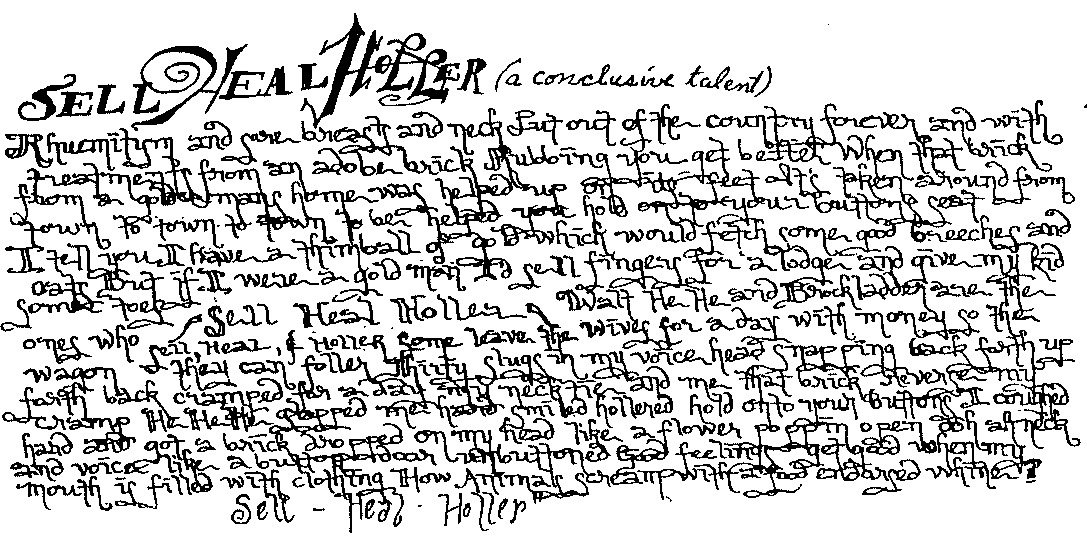 SELL HEAL HOLLER (a conclusive talent)
Rhumitism and sore breasts and neck Put out of the country forever and with
treatments from an adobe brick Rubbing you get better When that brick
from a gold mans home was helped up on its feet it's taken around from
town to town to town to be helped you hold onto your buttons seat
I tell you I have a thimball of gold which would fetch some good breeches and
oats But if I were a gold man I'd sell fingers for a lodge and give my kid
some toes Sell Heal Holler Walt He He and Brock ladder are the
ones who sell, Heal, & Holler some leave the wives for a day with money so the
wagon they can foller Thirty slugs in my voice head snapping back forth up
forth back cramped for a day my neck tie and me that brick reverse my
cramp He He He clapped me hand smiled hollered hold onto your buttons I couhed
hand and got a brick dropped on my head like a flower poppin open ooh ah neck
and voice like a button door unbuttoned good feelings get good when my
mouth is filled with clothing How Animals scream with a endorsed whine?
Sell - Heal - Holler